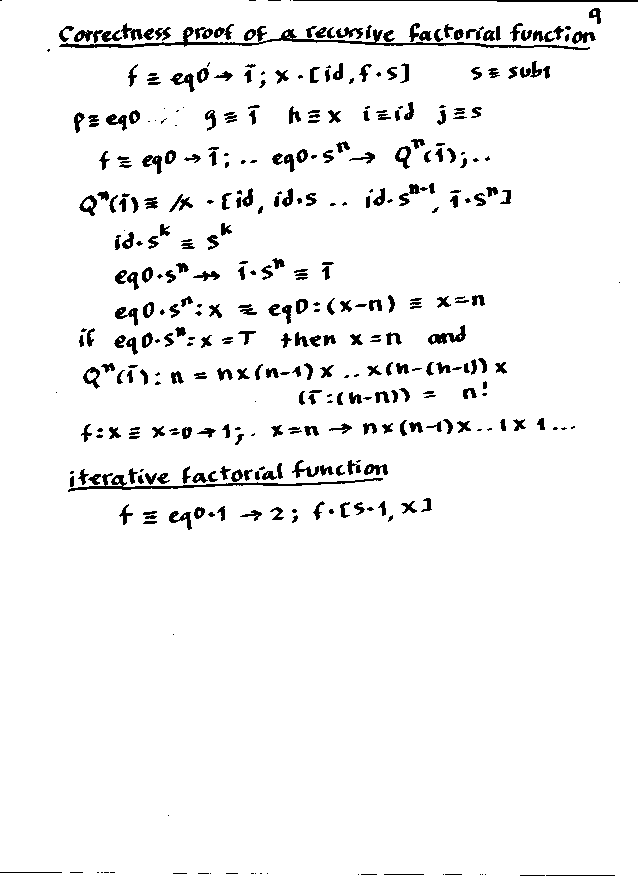 9
Correctness proof of a recursive factorial function
f ≡ eq0 → 1̄; × · [id, f · s]    s ≡ sub1
p ≡ eq0 ... g ≡ 1̄  h ≡ ×  i ≡ id  j ≡ s
f ≡ eq0 → 1̄; .. eq0 · sⁿ → Qⁿ(1̄); ..
Qⁿ(1̄) ≡ /× · [id, id · s .. id · sⁿ⁻¹, 1̄ · sⁿ]
id · sᵏ ≡ sᵏ
eq0 · sⁿ →→ 1̄ · sⁿ ≡ 1̄
eq0 · sⁿ : x ≡ eq0 : (x-n) ≡ x=n
if eq0 · sⁿ : x = T then x=n and
Qⁿ(1̄) : n = n × (n-1) × .. × (n-(n-1)) ×
(1̄ : (n-n)) = n!
f : x ≡ x=0 → 1; .. x=n → n × (n-1) × .. 1 × 1 ...
iterative factorial function
f ≡ eq0 · 1 → 2; f · [s · 1, ×]